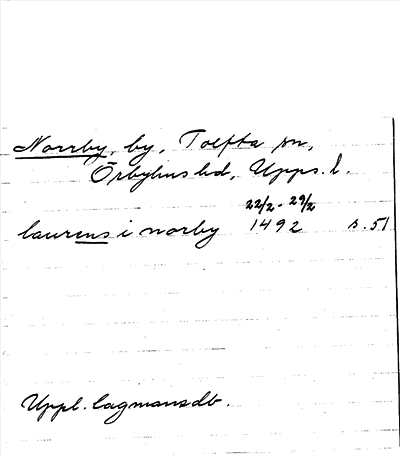 Norrby, by, Tolfta sn,
Örbyhus hd, Upps. l.
22/2 - 29/2
laurens i norby 1492 s. 51
Uppl. lagmansdb.